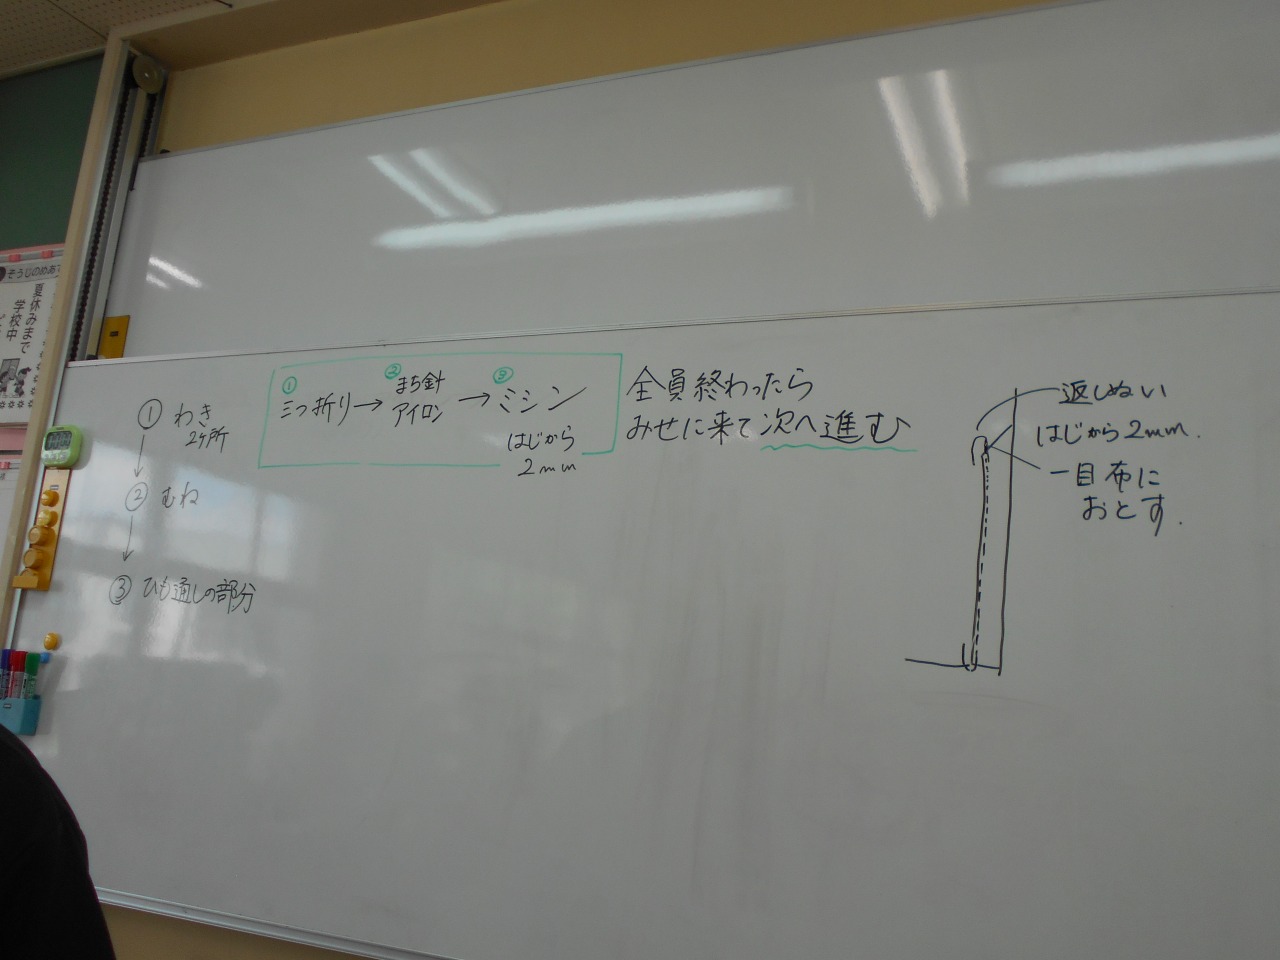 ① わき
2ヶ所
② むね
③ ひも通しの部分
① 三つ折り→
② まち針
アイロン
→ ③ ミシン
はじから
2mm
全員終わったら
みせに来て次へ進む
返しぬい
はじから2mm.
一目布に
おとす.
そうじのめあ
夏休みまで
学校中